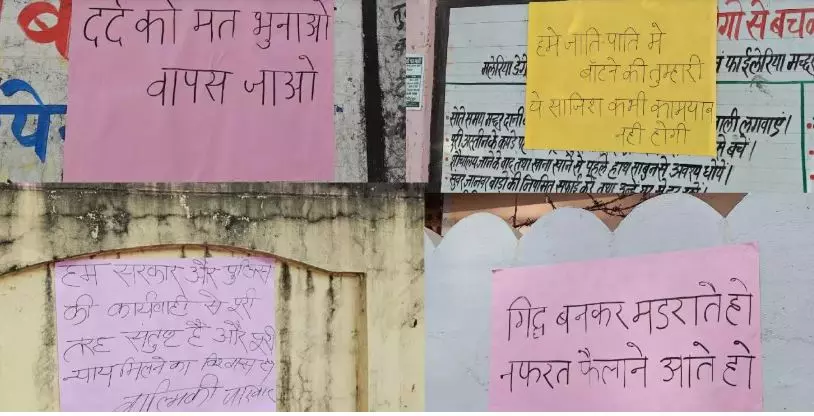 दर्द को मत भुनाओ
वापस जाओ
हमे जाति-पाति मे
बॉटने की तुम्हारी
ये साजिश कभी कामयाब
नही होगी
गो से बचन
मलेरिया डेंगे
फाईलेरिया मच्छर
सोते समय मच्छर दानी
जाली लगवाएं।
पूरी अस्तीन के कपडे
से बचें।
शौचालय जाने के बाद तथा खाना खाने से पहले हाथ साबुन से अवश्य धोयें।
हम सरकार और पुलिस
की कार्यवाही से पूरी
तरह संतुष्ट है और पूरी
न्याय मिलने का विश्वास है
वाल्मिकी परिवार
गिद्ध बनकर मडराते हो
नफरत फैलाने आते हो